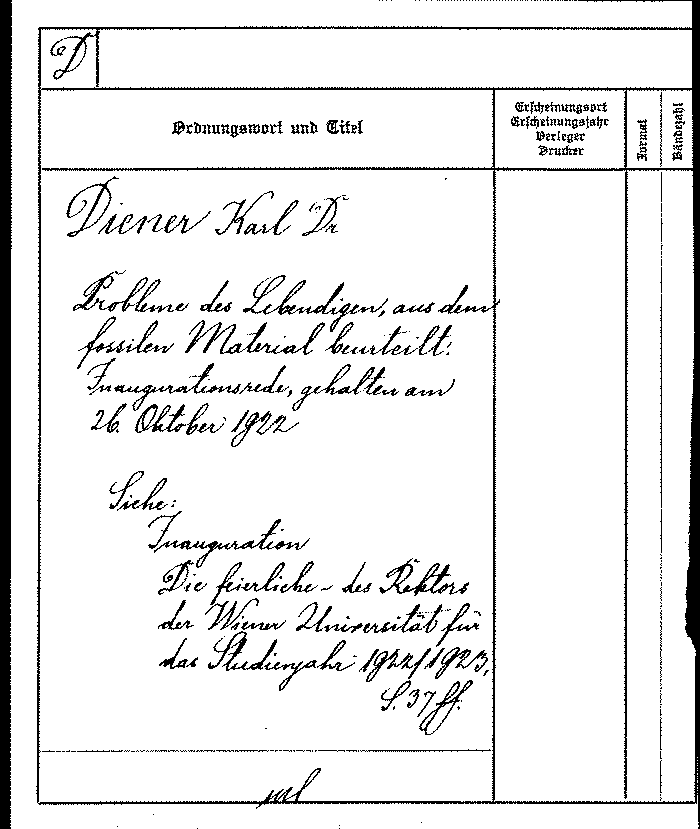 D
Ordnungswort und Titel
Erscheinungsort
Erscheinungsjahr
Verleger
Drucker
Format
Bändezahl
Diener Karl Dr
Probleme des Lebendigen, aus dem
fossilen Material beurteilt:
Inaugurationsrede, gehalten am
26. Oktober 1922
Siehe:
Inauguration
Die feierliche – des Rektors
der Wiener Universität für
das Studienjahr 1922/1923,
S. 37 ff.